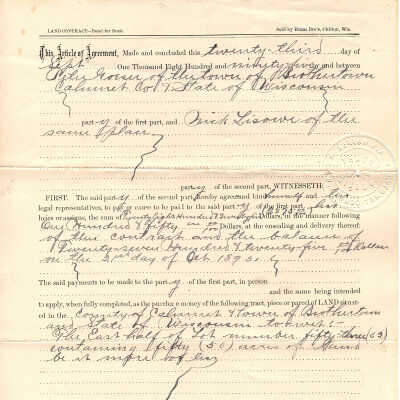 LAND CONTRACT—Bond for Deed.
This Article of Agreement, Made and concluded this twenty-third day of
Sept One Thousand Eight Hundred and ninety five by and between
of the town of Brothertown
Calumet Co. & State of Wisconsin
part y of the first part, and Nick Lisowe of the
same place
part y of the second part, WITNESSETH:
FIRST. The said part y of the second part, hereby agree and bind himself and his
legal representatives, to pay or cause to be paid to the said part y of the first part, his
heirs or assigns, the sum of Twenty Eight Hundred & Seventy five Dollars, in the manner following
One Hundred & fifty Dollars, at the ensealing and delivery
of this contract and the balance of
Twenty-seven Hundred & twenty five Dollars
on the 21st day of Oct 1895.
The said payments to be made to the part y of the first part, in person
and the same being intended
to apply, when fully completed, as the purchase money of the following tract, piece or parcel of LAND situat-
ed in the County of Calumet & town of Brothertown
and State of Wisconsin to wit:-
The East half of Lot number fifty-three (53)
containing fifty (50) acres of land
be it more or less